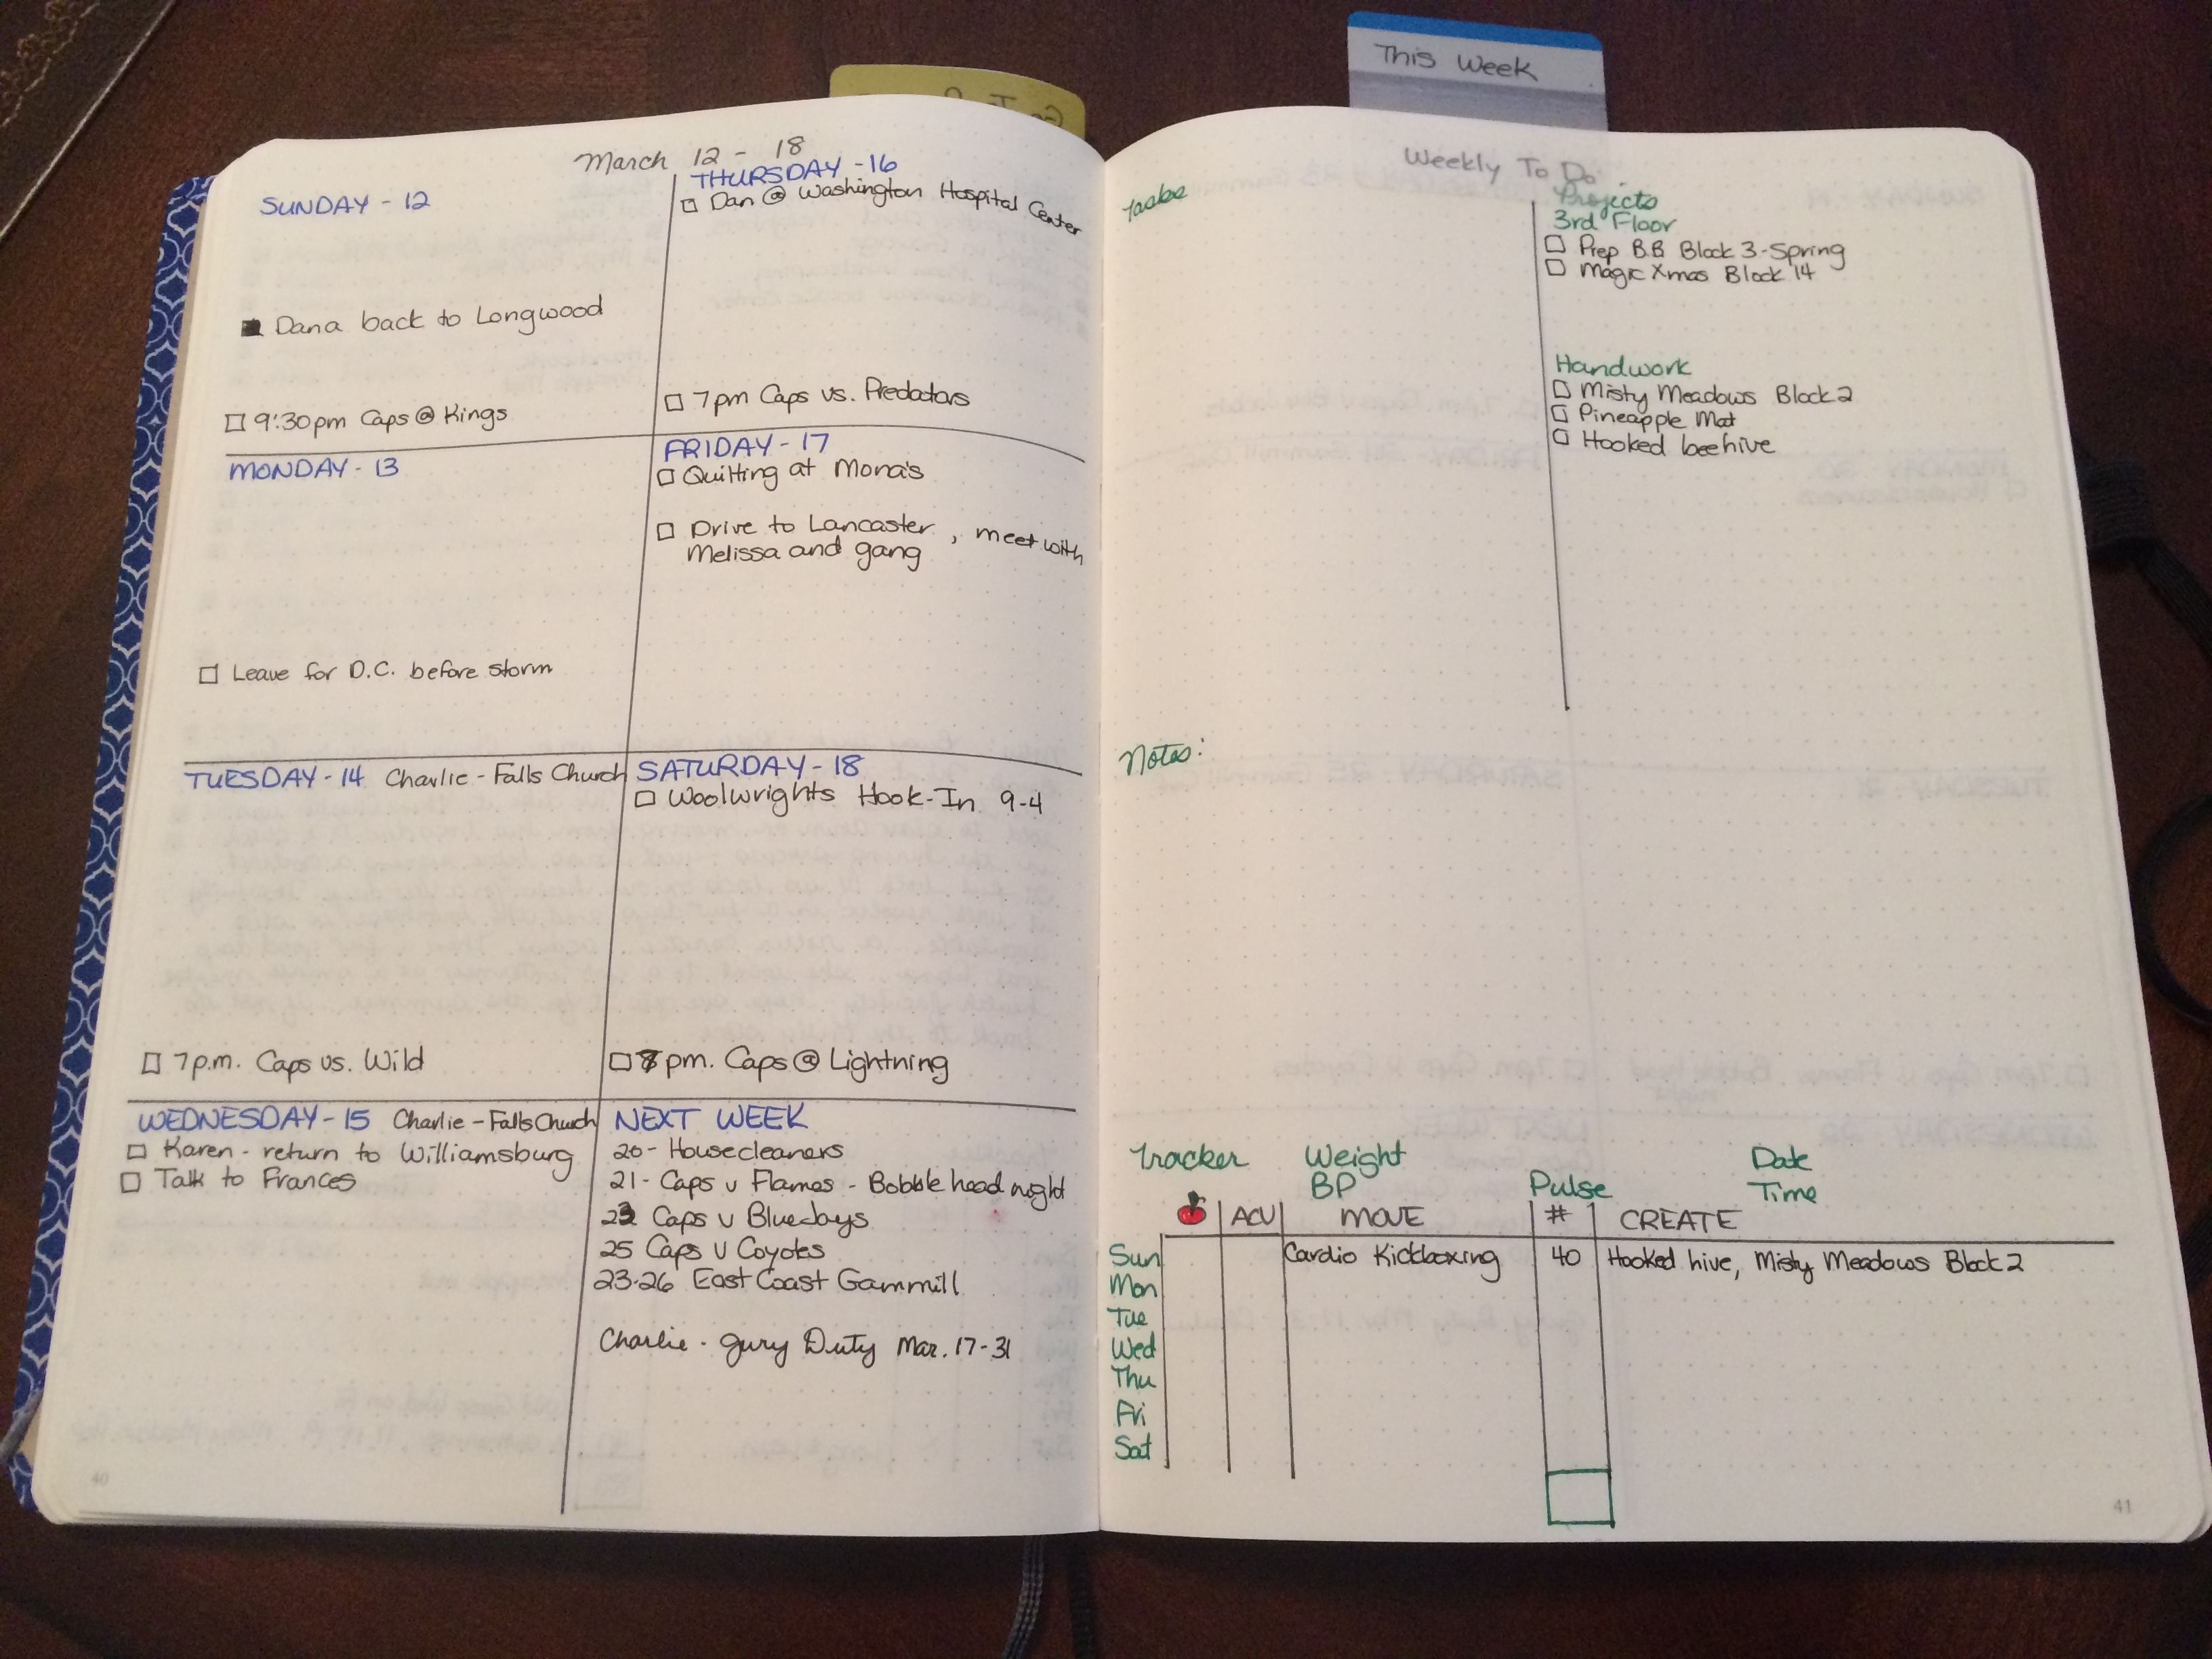 This Week
March 12 - 18
SUNDAY - 12
Dana back to Longwood
9:30pm Caps @ Kings
MONDAY - 13
Leave for D.C. before storm
TUESDAY - 14 Charlie - Falls Church
7p.m. Caps vs. Wild
WEDNESDAY - 15 Charlie - Falls Church
Karen - return to Williamsburg
Talk to Frances
THURSDAY - 16
Dan @ Washington Hospital Center
7pm Caps vs. Predators
FRIDAY - 17
Quilting at Mona's
Drive to Lancaster, meet with
Melissa and gang
SATURDAY - 18
Woolwrights Hook-In 9-4
pm. Caps @ Lightning
NEXT WEEK
20- Housecleaners
21- Caps v Flames - Bobblehead night
Caps v BlueJays
25 Caps v Coyotes
23-26 East Coast Gammill
Charlie - Jury Duty Mar. 17-31
40
Weekly To Do
Tasks
Projects
3rd Floor
Prep B.B. Block 3-Spring
Magic Xmas Block 14
Handwork
Misty Meadows Block 2
Pineapple Mat
Hooked beehive
Notes:
Tracker Weight Date
BP Pulse Time
ACU MOVE # CREATE
Sun Cardio Kickboxing 40 Hooked hive, Misty Meadows Block 2
Mon
Tue
Wed
Thu
Fri
Sat
41